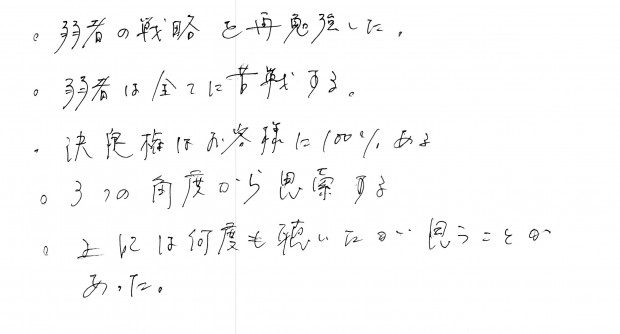 。弱者の戦略を再勉強した。
。弱者は全てに苦戦する。
・決定権はお客様に100%ある
。3つの角度から思索する
。上には何度も聴いたが思うことが
あった。